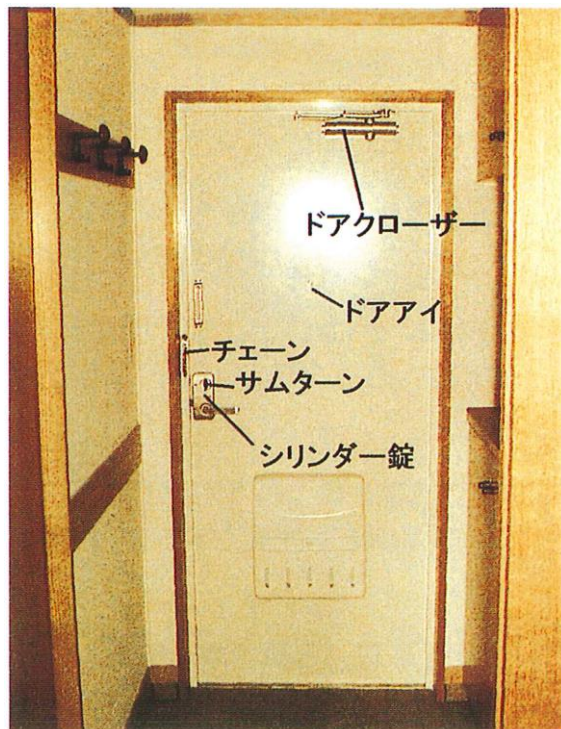 ドアクローザー
ドアアイ
チェーン
サムターン
シリンダー錠